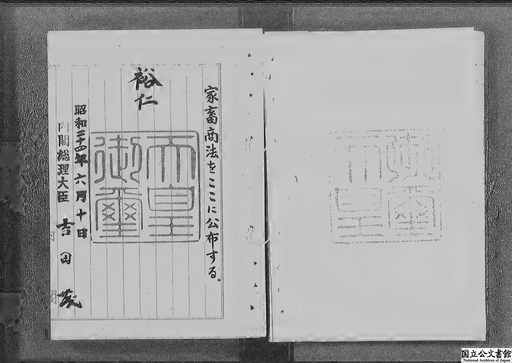 家畜商法をここに公布する。
裕仁
天皇
御璽
昭和二十四年六月十日
内閣総理大臣 吉田茂
国立公文書館
National Archives of Japan